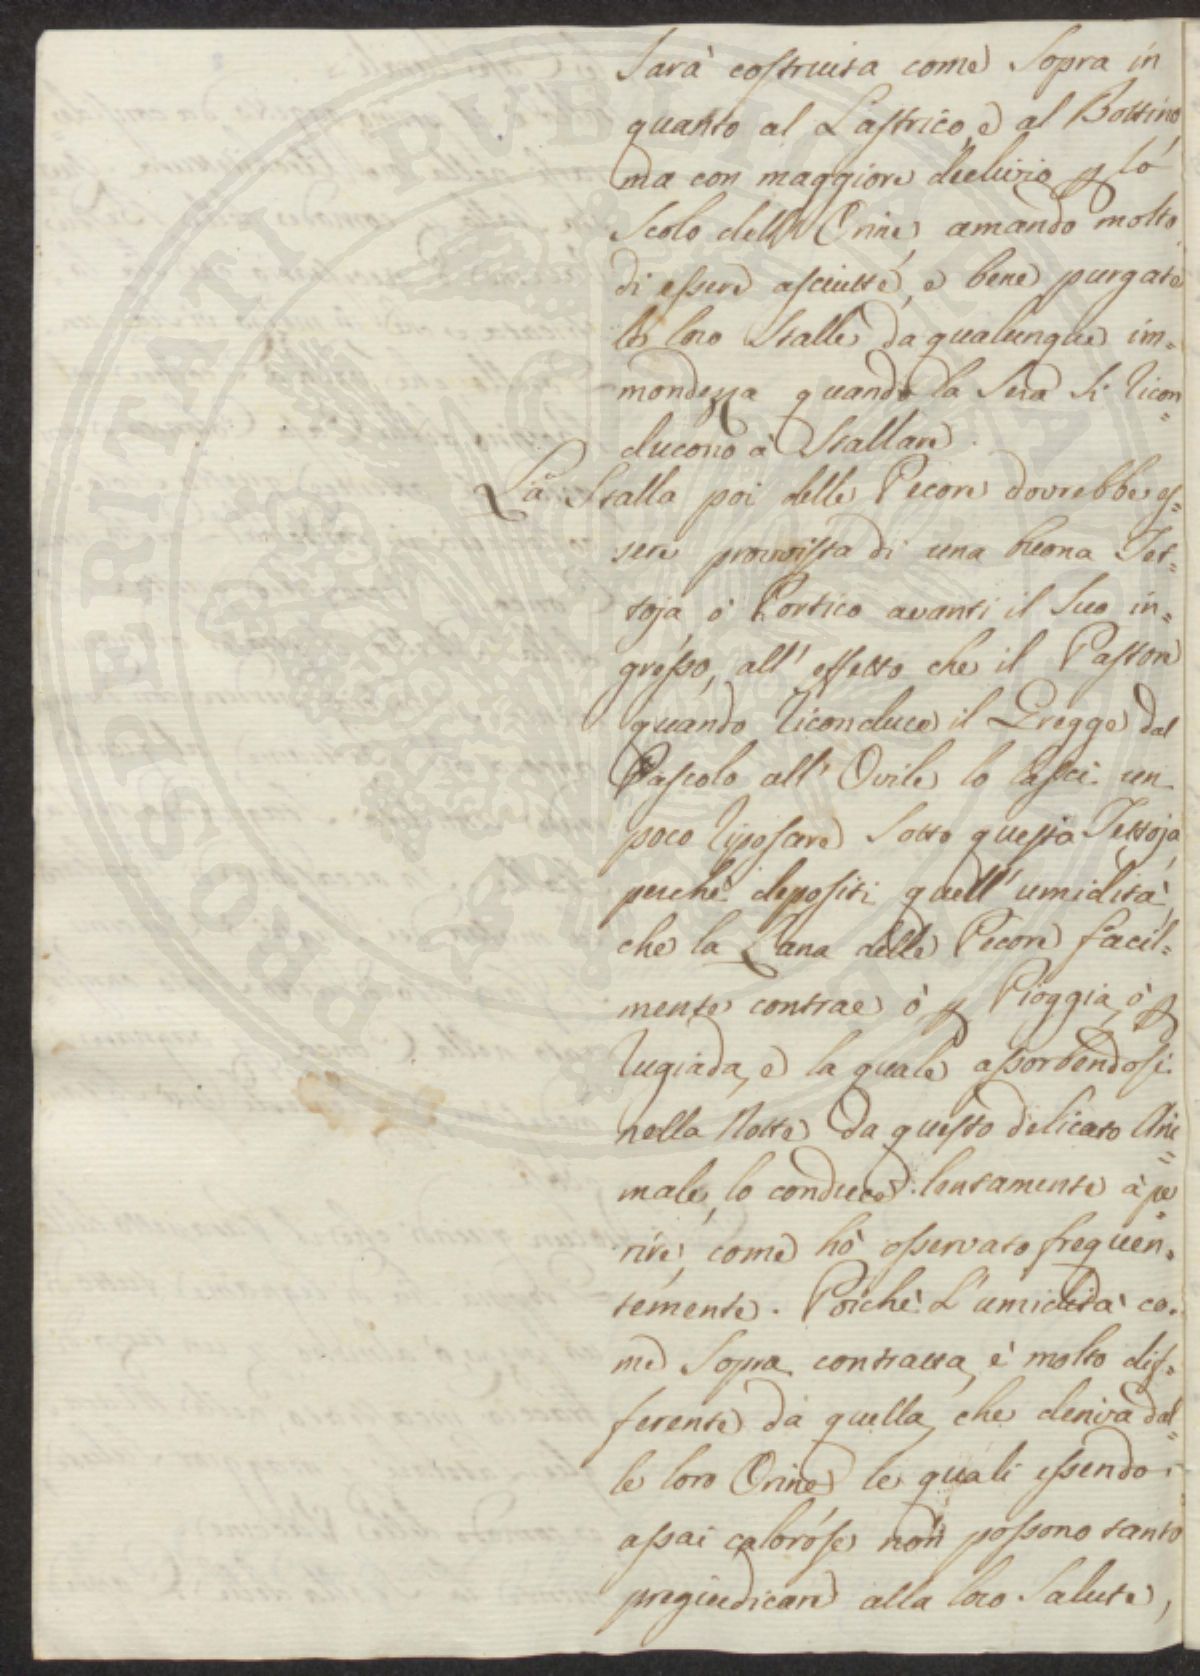 Sarà costruita come Sopra in
quanto al Lastrico, e al Bottino
ma con maggiore declivio p lo
Scolo delle Orine, amando molto
di essere asciutte, e bene purgate
le loro Stalle da qualunque im=
mondezza quando la Sera si ricon=
ducono à Stallare.
La Stalla poi delle Pecore dovrebbe es=
sere provvista di una buona Tet=
toja ò Portico avanti il Suo in=
gresso, all' effetto che il Pastore
quando riconduce il Gregge dal
Pascolo all' Ovile lo lasci un
poco riposare Sotto questa Tettoja,
perchè depositi quell' umidità,
che la Lana delle Pecore facil=
mente contrae ò p Pioggia, ò p
rugiada, e la quale assorbendosi
nella Notte da questo delicato Ani=
male, lo conduce lentamente à pe=
rire, come hò osservato frequen=
temente. Poichè L'umidità co=
me Sopra contratta, è molto dif=
ferente da quella, che deriva dal=
le loro Orine le quali essendo
assai calorose non possono tanto
pregiudicare alla loro Salute,
PROSPERITATI PUBLICAE